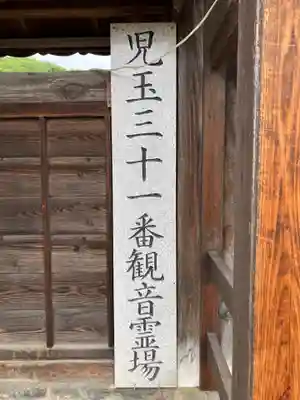 児玉三十一番観音霊場